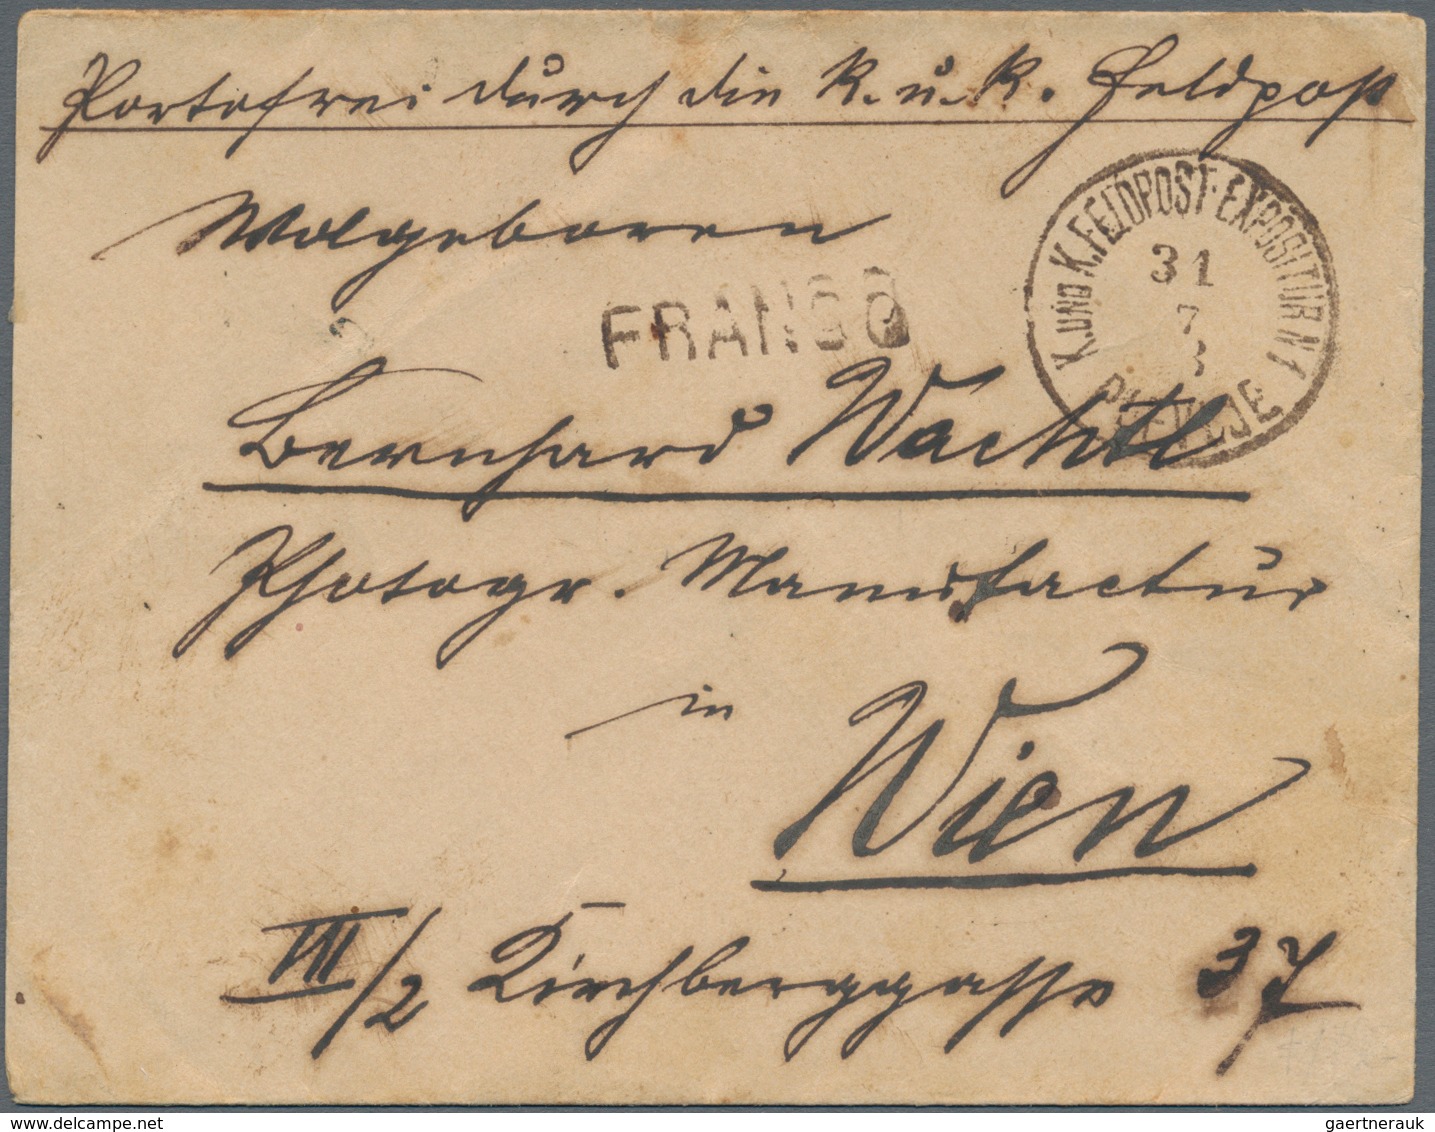 Portofrei durch die K. u. K. Feldpost
Wolgeboren
FRANCO
K. UND K. FELDPOST-EXPOSITUR N 1
31
7
PLEVLJE
Bernhard Wachtl
Photogr. Manufactur
in
Wien
VII/2 Kirchberggasse 37
gaertnerauk